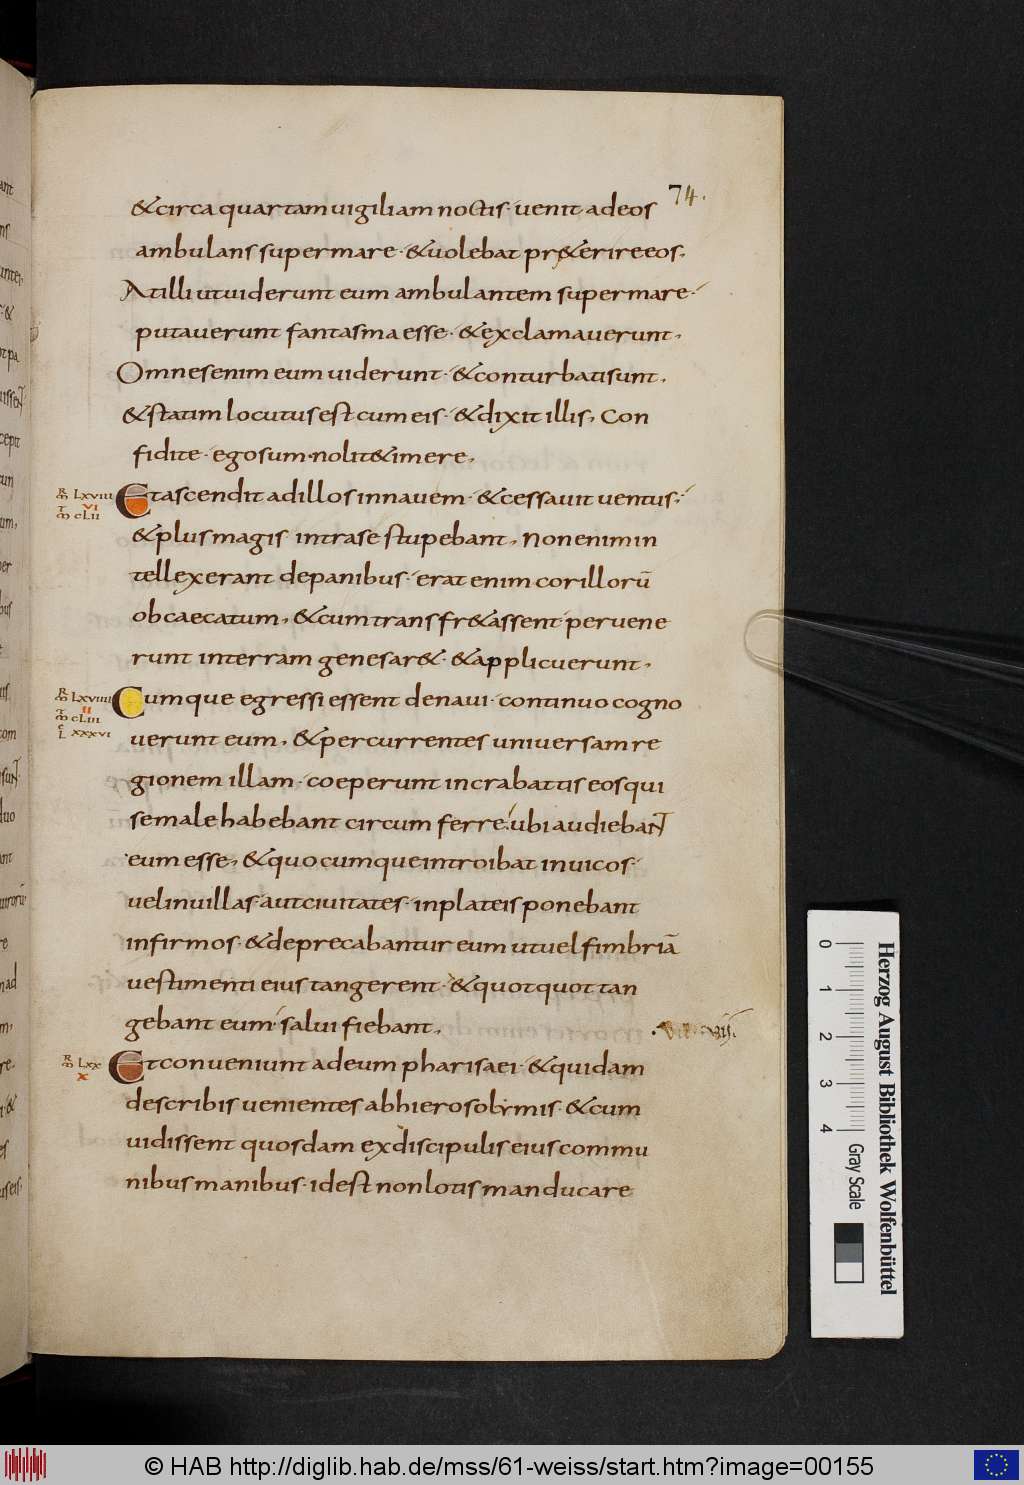 74.
&circa quartam uigiliam noctis· uenit adeos
ambulans supermare· &uolebat pr&erireeos·
Atilli utuiderunt eum ambulantem supermare·
putauerunt fantasma esse· &exclamauerunt,
Omnesenim eum uiderunt· &conturbatisunt,
&statim locutusest cum eis· &dixit illis, Con
fidite· egosum·nolit&imere,
Etascendit adillos innauem· &cessauit uentus·
&plusmagis intrase stupebant, Nonenimin
tellexerant depanibus· erat enim corillorū
obcaecatum, &cum transfr&assent peruene
runt interram genesar&· &applicuerunt,
Cumque egressi essent denaui· continuo cogno
uerunt eum, &percurrentes uniuersam re
gionem illam· coeperunt incrabattis eosqui
semale habebant circum ferre· ubi audiebant
eum esse, &quocumque introibat inuicos·
uelinuillas· autciuitates· inplateis ponebant
infirmos· &deprecabantur eum utuel fimbriā
uestimenti eius tangerent· &quotquot tan
gebant eum· salui fiebant,
Etconueniunt adeum pharisaei· &quidam
describis uenientes abhierosolymis· &cum
uidissent quosdam exdiscipulis eius commu
nibus manibus· idest nonlotis manducare
LXVIII
VI
CLII
LXVIIII
II
CLIII
L XXXVI
LXX
X
Herzog August Bibliothek Wolfenbüttel
0 1 2 3 4
Gray Scale
© HAB http://diglib.hab.de/mss/61-weiss/start.htm?image=00155